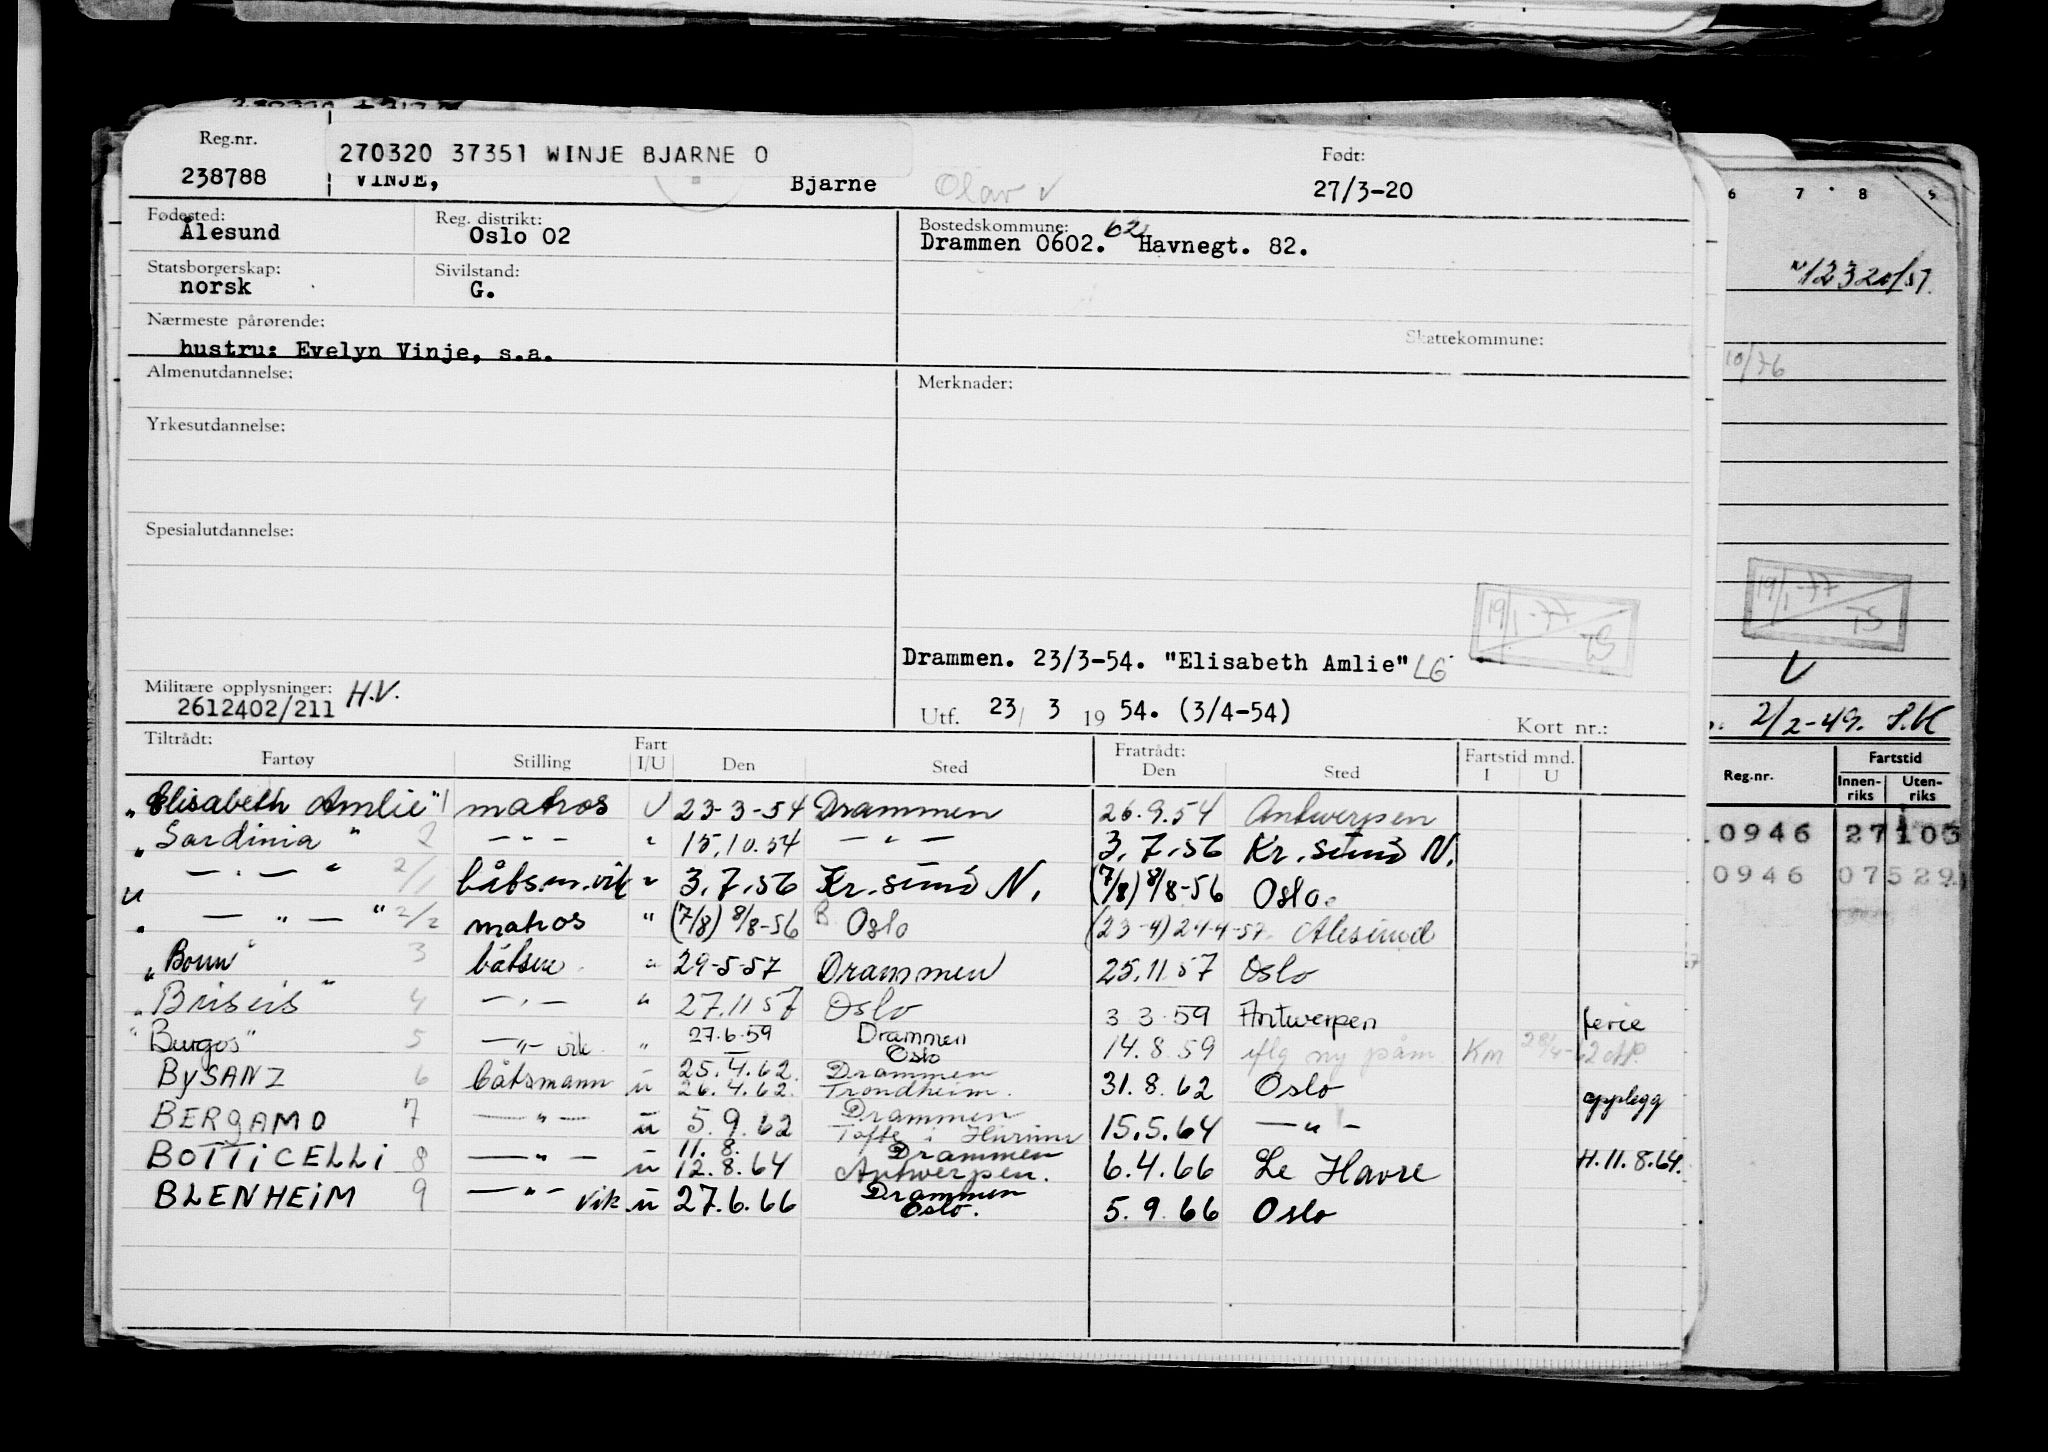 Reg.nr.
270320 37351 WINJE BJARNE O
Født:
238788
VINJE,
Bjarne
Olav v
27/3-20
Fødested:
Ålesund
Reg. distrikt:
Oslo 02
Bostedskommune:
62
Drammen 0602. Havnegt. 82.
Statsborgerskap:
norsk
Sivilstand:
G.
Nærmeste pårørende:
hustru: Evelyn Vinje, s.a.
Skattekommune:
Almenutdannelse:
Merknader:
Yrkesutdannelse:
Spesialutdannelse:
19/1-77
TS
Drammen. 23/3-54. "Elisabeth Amlie" LG
Militære opplysninger: H.V.
2612402/211
Utf. 23/ 3 19 54. (3/4-54)
Kort nr.:
Tiltrådt:
Fartøy
Stilling
Fart
I/U
Den
Sted
Fratrådt:
Den
Sted
Fartstid mnd.
I U
"Elisabeth Amlie" 1 matros U 23-3-54 Drammen 26.9.54 Antwerpen
"Sardinia" 2 — " — " 15.10.54 — " — 3.7.56 Kr.sund N.
— " — " 2/1 båtsm.vik " 3.7.56 Kr.sund N. (7/8) 8/8-56 Oslo.
" — " — " 2/2 matros " (7/8) 8/8-56 B. Oslo (23-4) 24-4-57 Ålesund
"Bonn" 3 båtsm. " 29-5-57 Drammen 25.11.57 Oslo
"Briseis" 4 — " — " 27.11.57 Oslo 3 3 59 Antwerpen ferie
"Burgos" 5 — " — vik. " 27.6.59 Drammen
Oslo 14.8.59 iflg ny påm Km
BYSANZ 6 båtsmann u 25.4.62. Drammen
26.4.62. Trondheim. 31.8.62 Oslo opplegg
BERGAMO 7 — " — u 5.9.62 Drammen
Tofte i Hurum 15.5.64 — " —
BOTTICELLI 8 — " — u 11.8. Drammen
12.8.64 Antwerpen. 6.4.66 Le Havre H.11.8.64.
BLENHEIM 9 — " — vik u 27.6.66 Drammen
Oslo. 5.9.66 Oslo
6 7 8
12320/57.
10/76
19/1-77
TS
V
2/2-49. S.K
Reg.nr.
Fartstid
Innen-
riks
Uten-
riks
.0946 27103
0946 07529